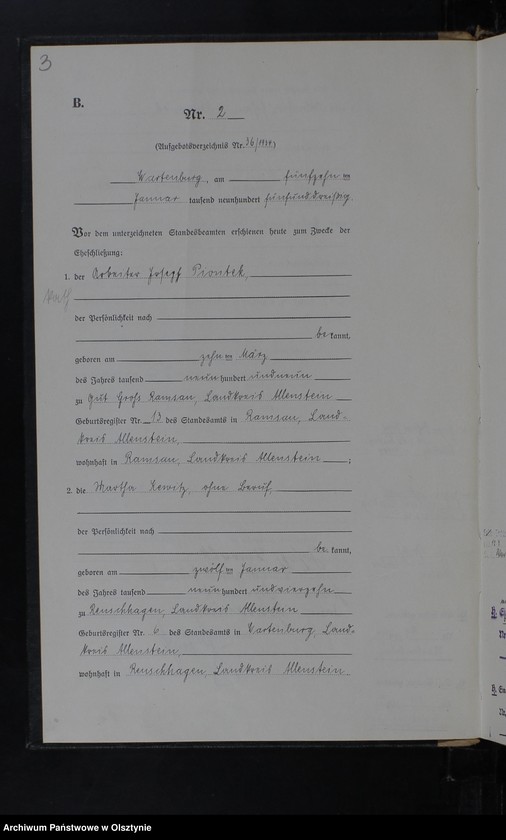 3
B.
Nr. 2
(Aufgebotsverzeichnis Nr. 36/1934)
Wartenburg, am fünfzehn ten
Januar tausend neunhundert fünfunddreißig.
Vor dem unterzeichneten Standesbeamten erschienen heute zum Zwecke der
Eheschließung:
1. der Arbeiter Josef Piontek,
kath
der Persönlichkeit nach
be kannt,
geboren am zehn ten März
des Jahres tausend neun hundert undneun
zu Gut Groß Ramsau, Landkreis Allenstein
Geburtsregister Nr. 13 des Standesamts in Ramsau, Land-
kreis Allenstein,
wohnhaft in Ramsau, Landkreis Allenstein ;
2. die Martha, ohne Beruf,
der Persönlichkeit nach
be kannt,
geboren am zwölf ten Januar
des Jahres tausend neun hundert undvierzehn
zu Reuschhagen, Landkreis Allenstein
Geburtsregister Nr. 6 des Standesamts in Wartenburg, Land-
kreis Allenstein,
wohnhaft in Reuschhagen, Landkreis Allenstein
Archiwum Państwowe w Olsztynie